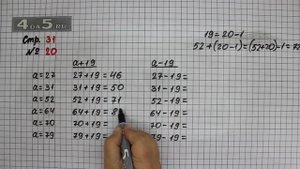 4DS.RU
Стр. 31
№ 20
19=20-1
52+(20-1)=(52+20)-1=7
a+19 a-19
a=27 27+19=46 27-19=
a=31 31+19=50 31-19=
a=52 52+19=71 52-19=
a=64 64+19=8 64-19=
a=70 70+19= 70-19=
a=79 79+19= 79-19=